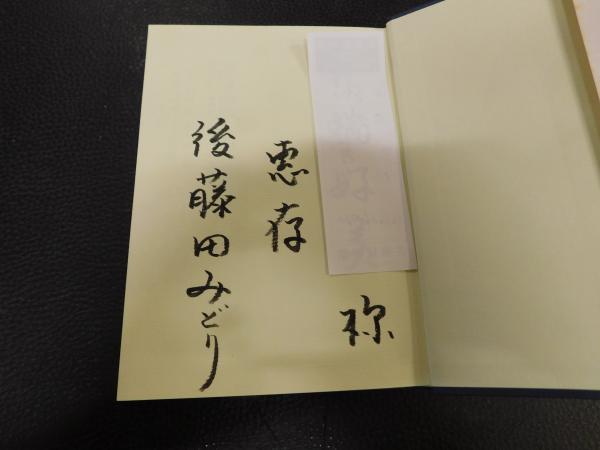 様
惠存
後藤田みどり